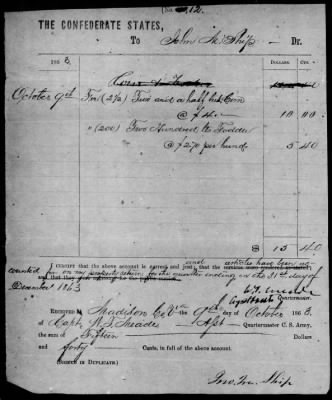 (No. 12.)
THE CONFEDERATE STATES,
To John M. Ship Dr.
186 3 DOLLARS CTS.
October 9th For (2½) Two and a half bus Corn
@ $4 — 10 00
" (200) Two Hundred lbs Fodder
@ $2 70 per hund: 5 40
$ 15 40
I CERTIFY that the above account is correct and just; that the articles have been ac-
counted for on my property return for the quarter ending on the 31st day of
December 1863
Quartermaster.
RECEIVED at Madison Co Va the 9th of October 186 3, of
Capt W. T. Meade Asst Quartermaster C. S. Army,
the sum of Fifteen Dollars
and forty Cents, in full of the above account.
(SIGNED IN DUPLICATE.)
Jno. M. Ship